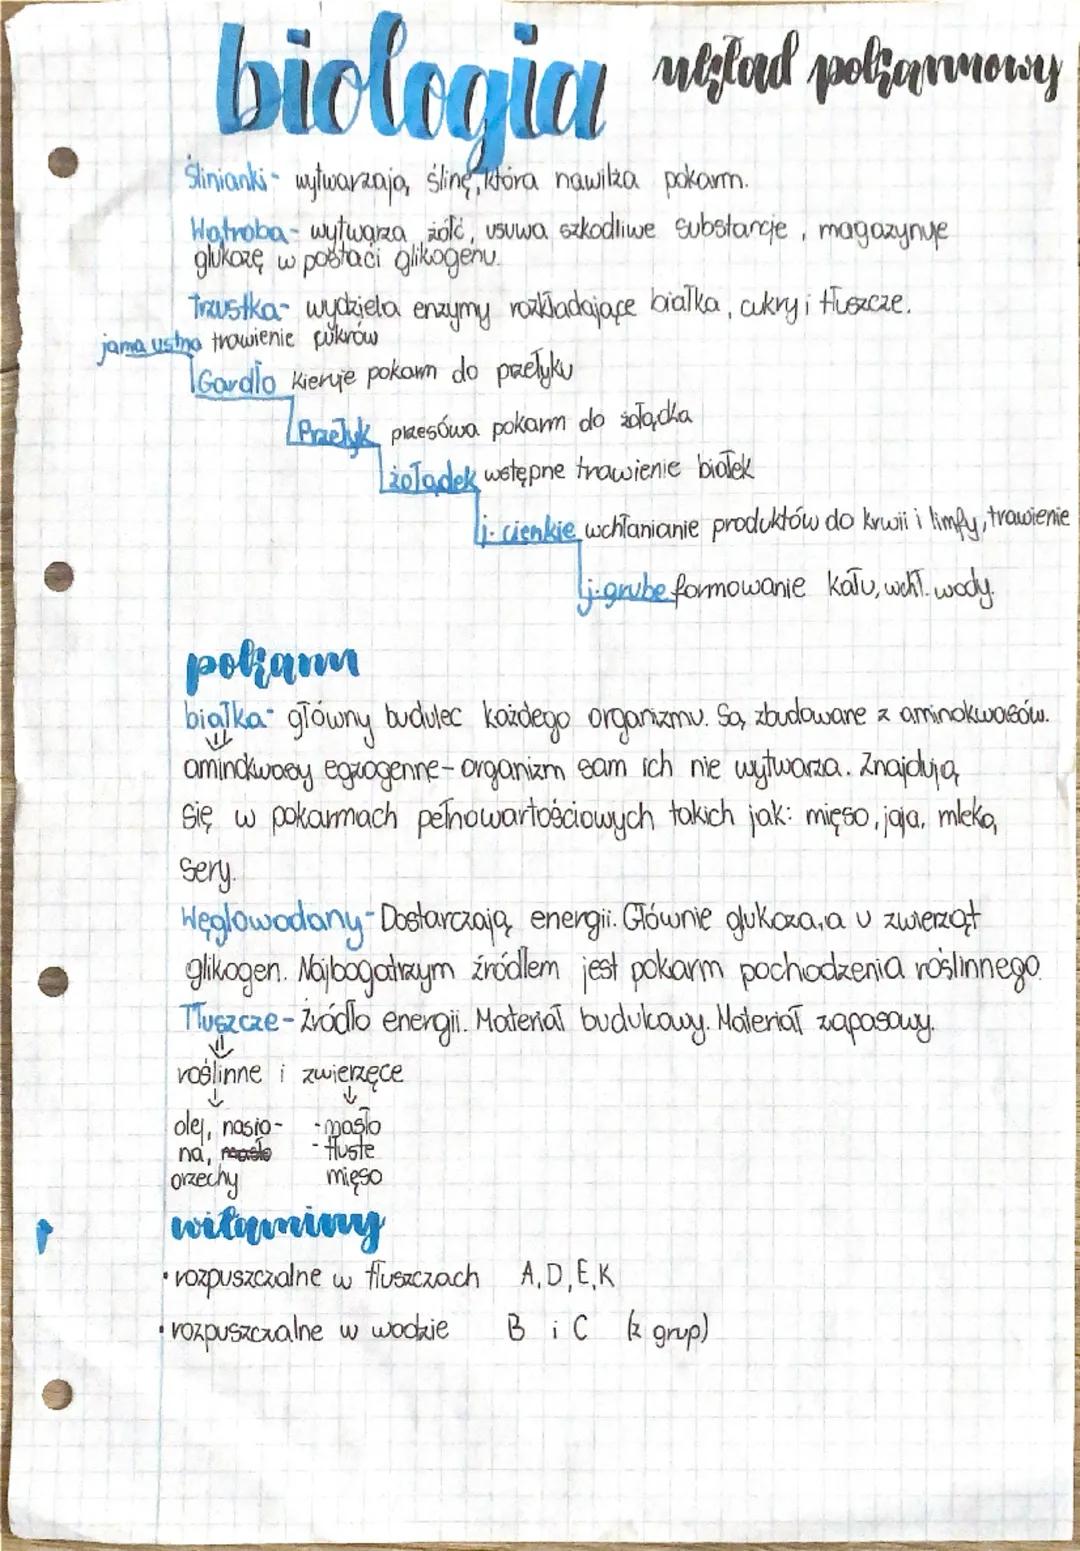 biologia układ pokarmowy
Ślinianki- wytwarzają ślinę, która nawilża pokarm.
Wątroba- wytwarza żółć, usuwa szkodliwe substancje, magazynuje
glukozę w postaci glikogenu.
Trzustka- wydziela enzymy rozkładające białka, cukry i tłuszcze.
jama ustna trawienie cukrów
Gardło kieruje pokarm do przełyku
Przełyk przesówa pokarm do żołądka
żołądek wstępne trawienie białek
j. cienkie wchłanianie produktów do krwii i limfy, trawienie
j. grube formowanie kału, wchł. wody.
pokarm
białka- główny budulec każdego organizmu. Są zbudowane z aminokwasów.
aminokwasy egzogenne- organizm sam ich nie wytwarza. Znajdują
się w pokarmach pełnowartościowych takich jak: mięso, jaja, mleko,
sery.
Węglowodany- Dostarczają energii. Głównie glukoza, a u zwierząt
glikogen. Najbogatrzym źródłem jest pokarm pochodzenia roślinnego.
Tłuszcze- Źródło energii. Materiał budulcowy. Materiał zapasowy.
roślinne i zwierzęce
olej, nasio- - masło
na, masło - tłuste
orzechy mięso
witaminy
• rozpuszczalne w tłuszczach A, D, E, K
• rozpuszczalne w wodzie B i C (z grup)